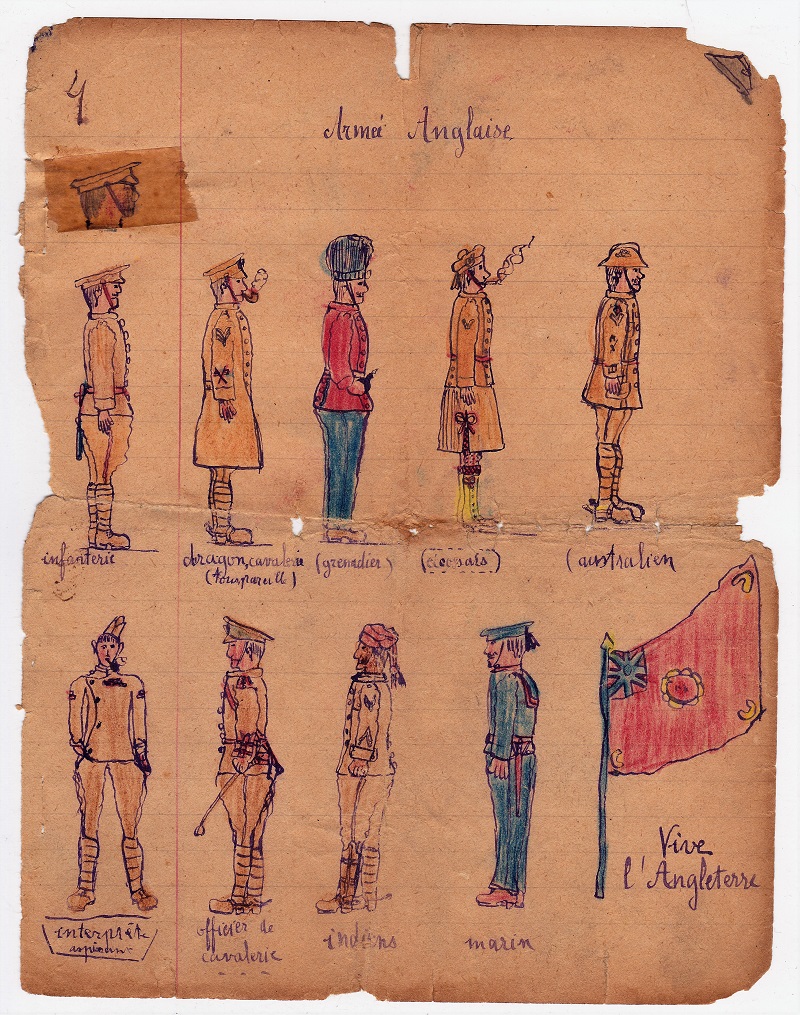 4
Armée Anglaise
infanterie
dragon, cavalerie
(tous pareill)
(grenadier)
(écossais)
(australien
interprète
aspirant
officier de
cavalerie
indiens
marin
Vive
l'Angleterre